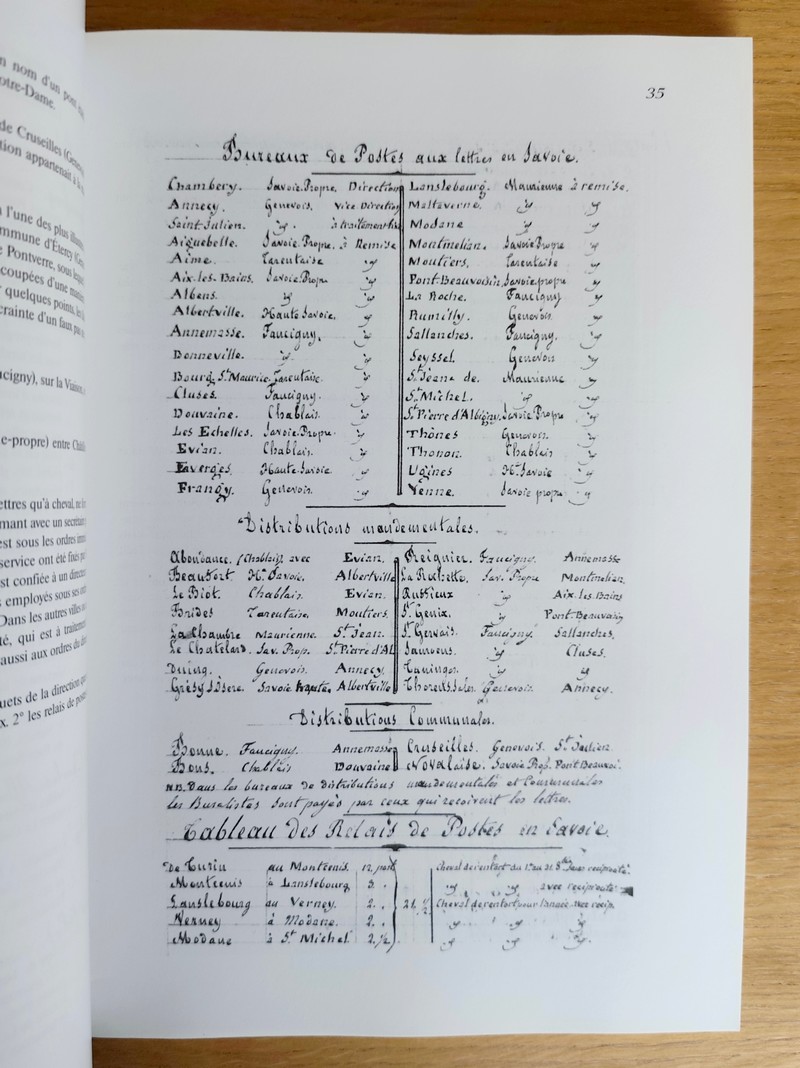 n nom d'un pont
otre-Dame.
de Cruseilles (Genev
tion appartenait à
à l'une des plus illus
mmune d'Eterey
e Pontverre, sous
coupées d'une
r quelques points,
crainte d'un faux pas
ucigny), sur la Viaison,
e-propre) entre
ettres qu'à cheval,
mant avec un secrétaire
est sous les ordres
service ont été fixés
est confiée à un directeur
employés sous ses
Dans les autres villes
té, qui est à traitement
aussi aux ordres du
uets de la direction
x. 2° les relais de postes
35
Bureaux de Postes aux lettres en Savoie.
Chambery. Savoie-Propre. Direction
Annecy. Genevois. Vice Direction
Saint-Julien. y. à traitement fixe
Aiguebelle. Savoie-Propre. à Remise
Aime. Tarentaise y
Aix-les-Bains. Savoie-Propre y
Albens. y y
Albertville. Haute Savoie. y
Annemasse. Faucigny. y
Bonneville. y. y
Bourg St Maurice. Tarentaise. y
Cluses. Faucigny. y
Douvaine. Chablais. y
Les Echelles. Savoie-Propre. y
Evian. Chablais. y
Faverges. Haute-Savoie y
Frangy. Genevois. y
Lanslebourg. Maurienne à remise.
Maltaverne. y y
Modane y y
Montmelian. Savoie Propre y
Moutiers. Tarentaise y
Pont-Beauvoisin. Savoie-propre y
La Roche. Faucigny y
Rumilly. Genevois. y
Sallanches. Faucigny. y
Seyssel. Genevois y
St Jeane de. Maurienne y
St Michel. y y
St Pierre d'Albigny. Savoie Propre y
Thônes Genevois. y
Thonon. Chablais y
Ugines Hte Savoie y
Yenne. Savoie propre. y
Distributions mandementales.
Abondance. (Chablais) avec Evian.
Beaufort Hte Savoie. Albertville
Le Biot. Chablais. Evian.
Brides Tarentaise. Moutiers.
La Chambre Maurienne. St Jean.
Le Chatelard. Sav. Prop. St Pierre d'Al.
Duing. Genevois. Annecy.
Grésy s. Isère. Savoie haute. Albertville
Reignier. Faucigny. Annemasse
La Rochette. Sav. Propre Montmelian.
Ruffieux y Aix-les-Bains
St Genix. y Pont-Beauvoisin
St Gervais. Faucigny. Sallanches.
Samoens. y Cluses.
Taninges. y y
Thorens-Sales. Genevois. Annecy.
Distributions Communales.
Bonne. Faucigny. Annemasse
Bons. Chablais Douvaine
Cruseilles. Genevois. St Julien.
Novalaise. Savoie Prop. Pont Beauvoi.
N.B. Dans les bureaux de distributions mandementales et Communales
les Buralistes sont payés par ceux qui reçoivent les lettres.
Tableau des Relais de Postes en Savoie.
De Turin au Montcenis. 12. post Cheval de renfort du 1er au 31. Xbre sans réciprocité.
Montcenis à Lanslebourg. 3. y y avec réciprocité
Lanslebourg au Verney. 2. 21. ½ Cheval de renfort pour l'année avec récip.
Verney à Modane. 2. y y y
Modane à St Michel. 2. ½ y y y.